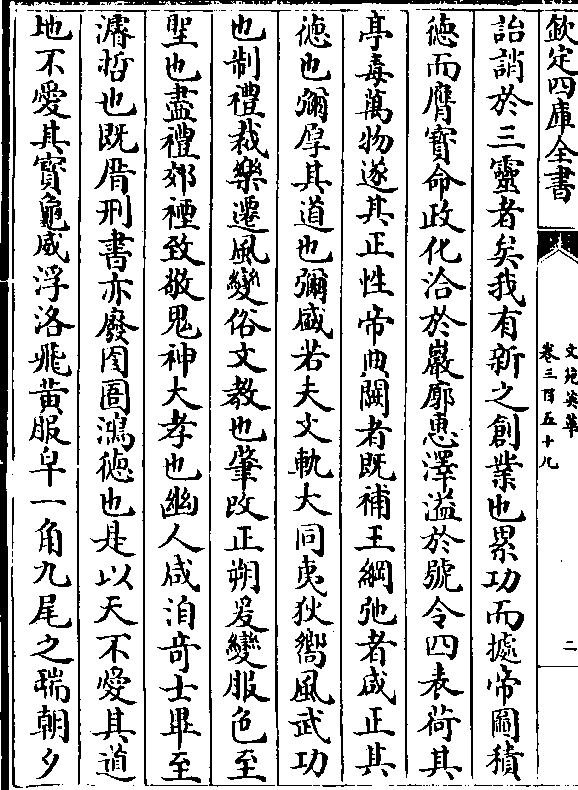 欽定四庫全書
文苑英華
卷三百五十九
二
詒誚於三靈者矣我有新之創業也累功而據帝圖積
徳而膺寳命政化洽於巖廊惠澤溢於號令四表荷其
亭毒萬物遂其正性帝典闕者既補王綱弛者咸正其
徳也彌厚其道也彌盛若夫文軌大同夷狄嚮風武功
也制禮裁樂遷風變俗文教也肇改正朔爰變服色至
聖也盡禮郊禋致敬鬼神大孝也幽人咸洎竒士畢至
濬哲也既厝刑書亦廢囹圄鴻徳也是以天不愛其道
地不愛其寳龜咸浮洛飛黄服皁一角九尾之瑞朝夕